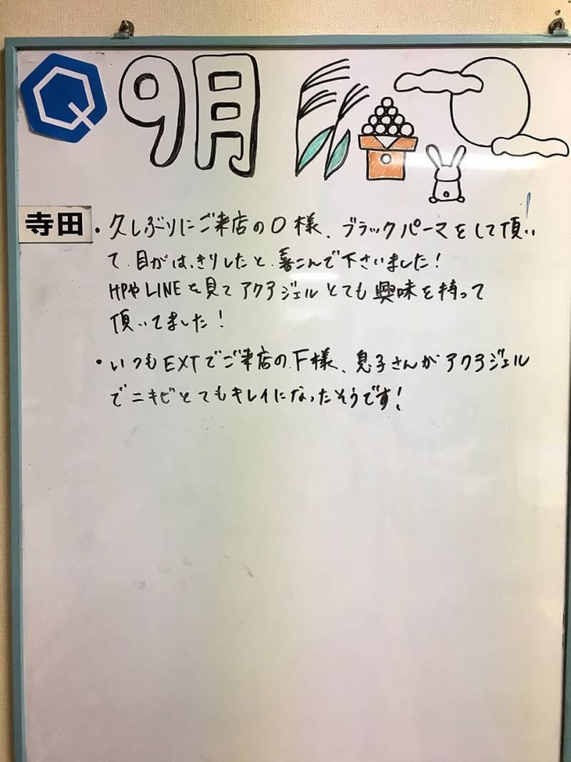 Q 9月
寺田
・久しぶりにご来店のO様、ブラックパーマをして頂い
て、目がはっきりしたと、喜こんで下さいました!
HPやLINEを見てアクアジェルとても興味を持って
頂いてました!
・いつもEXTでご来店のF様、息子さんがアクアジェル
でニキビとてもキレイになったそうです!